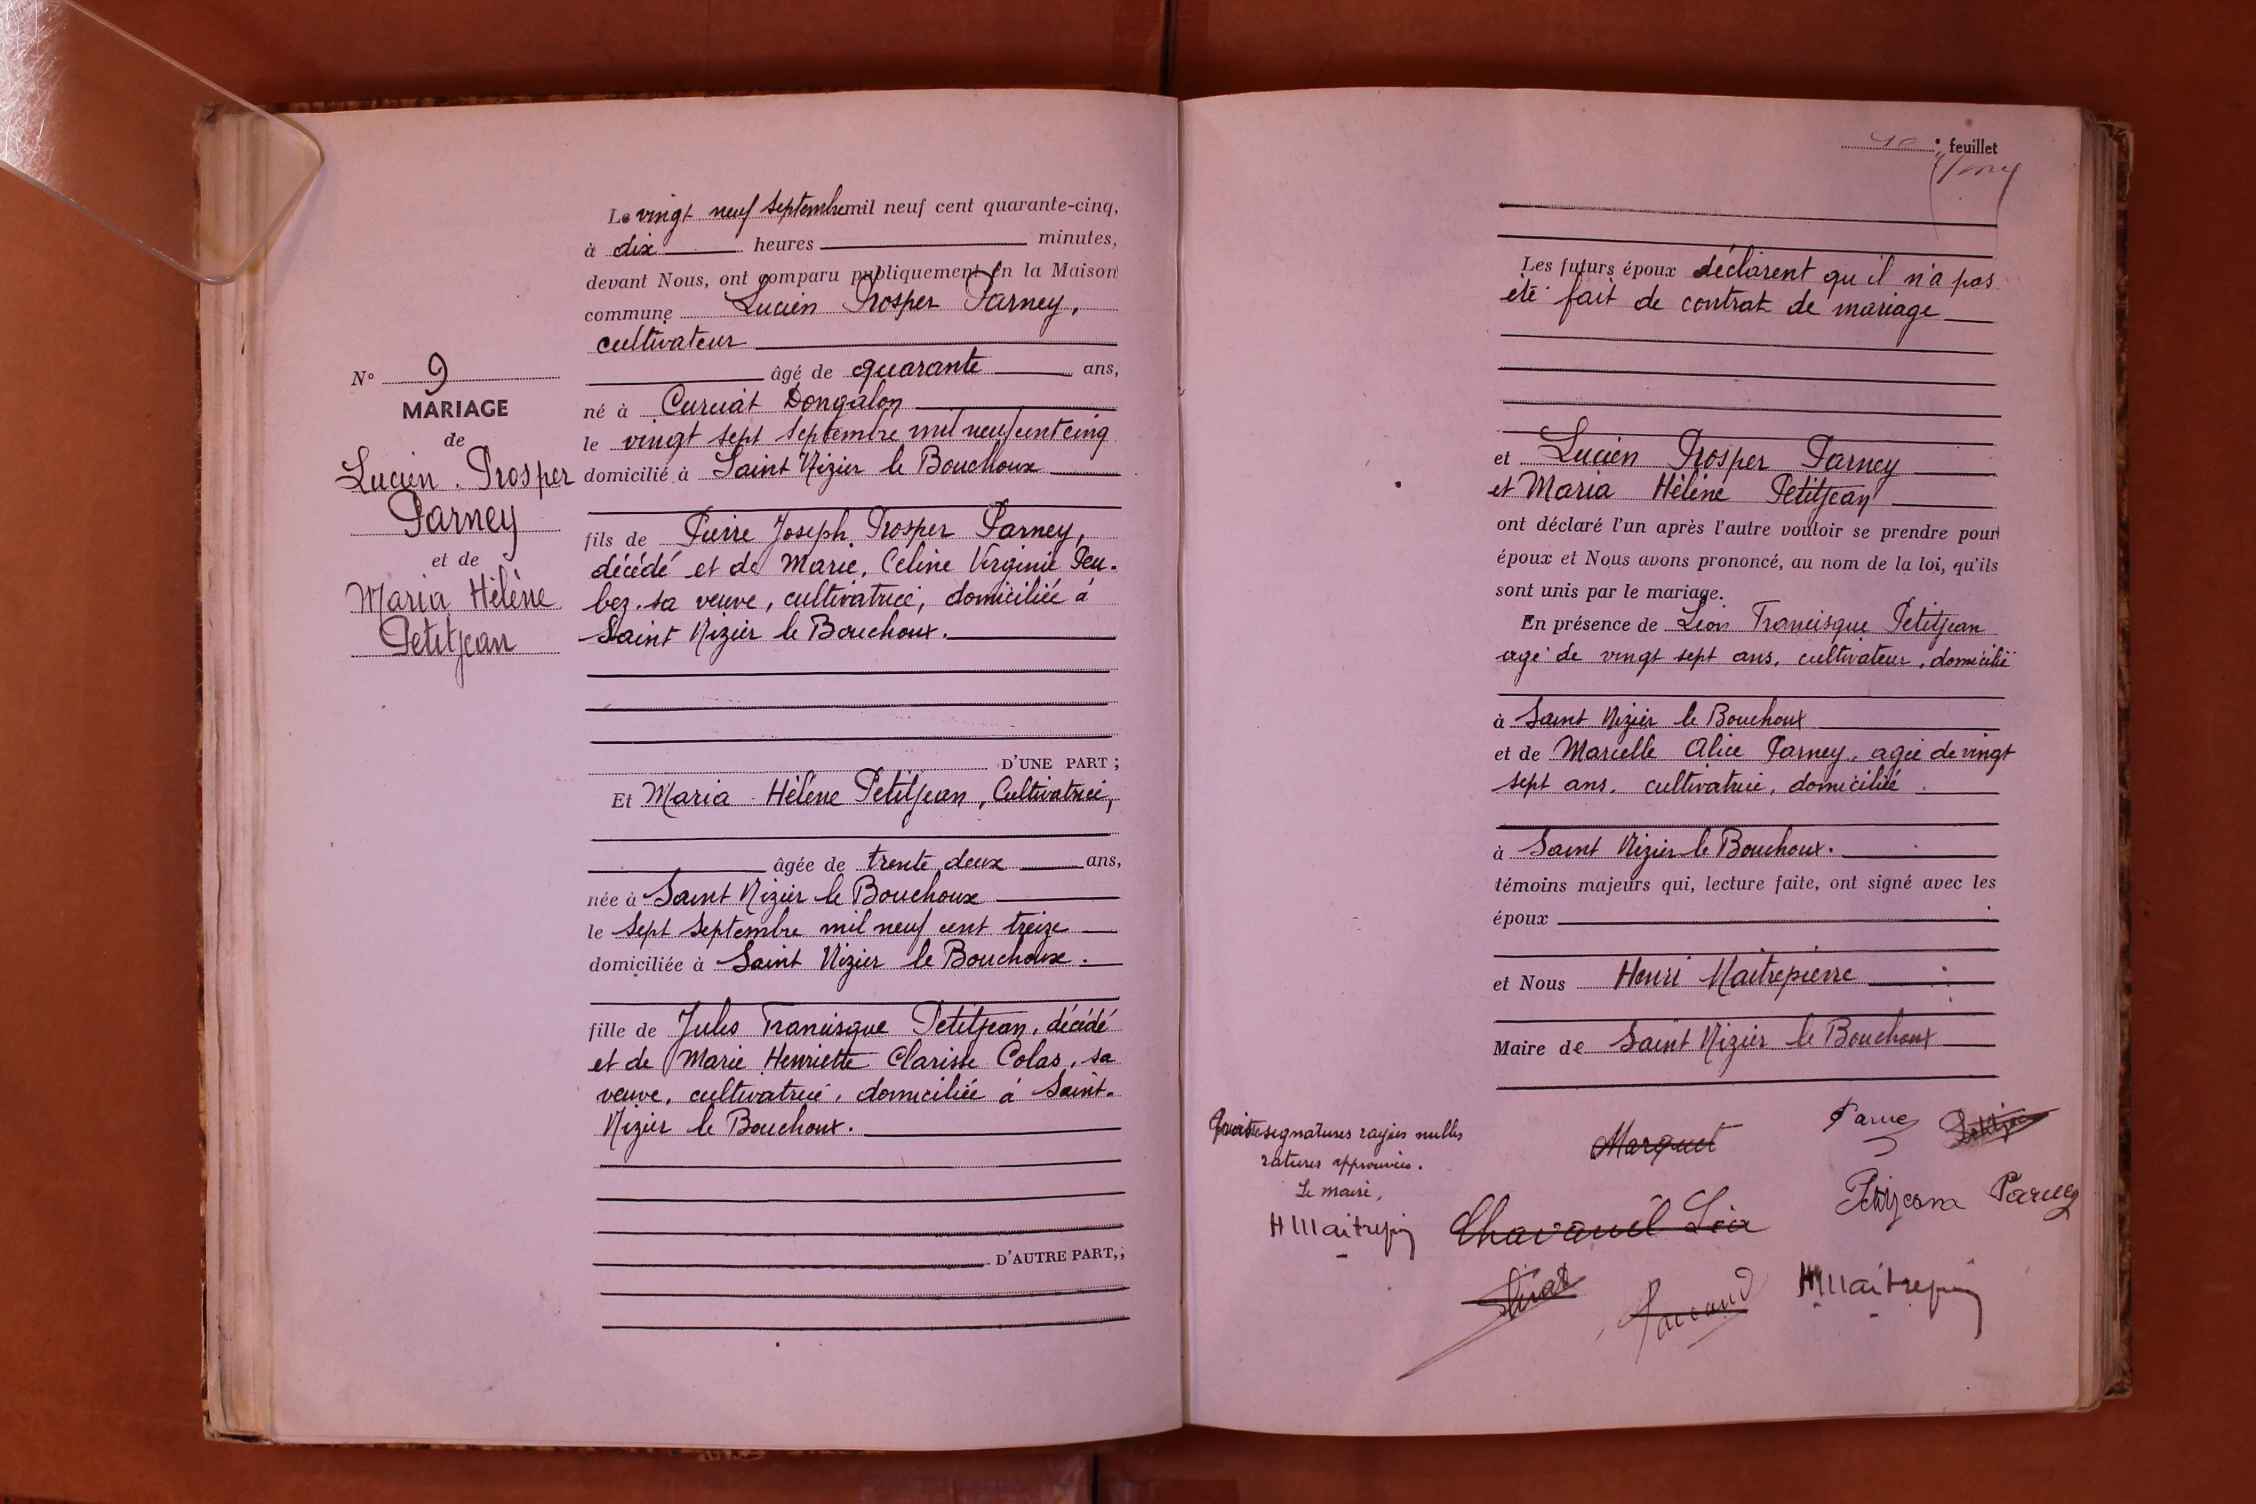 N° 9
MARIAGE
de
Lucien Prosper
Parney
et de
Maria Hélène
Petitjean
Le vingt neuf Septembre mil neuf cent quarante-cinq,
à dix heures minutes,
devant Nous, ont comparu publiquement en la Maison
commune Lucien Prosper Parney,
cultivateur
âgé de quarante ans,
né à Curciat Dongalon
le vingt sept Septembre mil neuf cent cinq
domicilié à Saint Nizier le Bouchoux
fils de Pierre Joseph Prosper Parney,
décédé et de Marie, Celine Virginie Peu-
bez sa veuve, cultivatrice, domiciliée à
Saint Nizier le Bouchoux.
D'UNE PART ;
Et Maria Hélène Petitjean, Cultivatrice,
âgée de trente deux ans,
née à Saint Nizier le Bouchoux
le sept Septembre mil neuf cent treize
domiciliée à Saint Nizier le Bouchoux.
fille de Jules Francisque Petitjean, décédé
et de Marie Henriette Clarisse Colas, sa
veuve, cultivatrice, domiciliée à Saint-
Nizier le Bouchoux.
D'AUTRE PART,;
feuillet
Les futurs époux déclarent qu'il n'a pas
été fait de contrat de mariage
et Lucien Prosper Parney
et Maria Hélène Petitjean
ont déclaré l'un après l'autre vouloir se prendre pour
époux et Nous avons prononcé, au nom de la loi, qu'ils
sont unis par le mariage.
En présence de Léon Francisque Petitjean
agé de vingt sept ans, cultivateur, domicilié
à Saint Nizier le Bouchoux
et de Marcelle Alice Parney, agée de vingt
sept ans, cultivatrice, domiciliée
à Saint Nizier le Bouchoux.
témoins majeurs qui, lecture faite, ont signé avec les
époux
et Nous Henri Maitrepierre
Maire de Saint Nizier le Bouchoux
signatures rayées nulles
ratures approuvées.
Le maire,
HMaitrepierre
Marguet
Parney Petitjean
Petitjean Parney
HMaitrepierre